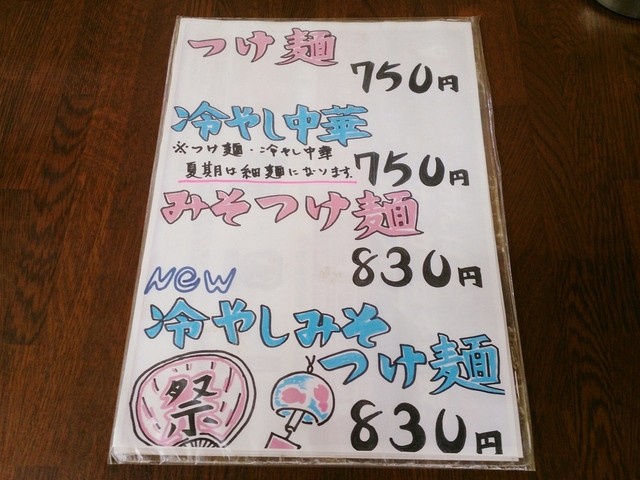 つけ麺
750円
冷やし中華
※つけ麺・冷やし中華
夏期は細麺になります。
750円
みそつけ麺
830円
NeW
冷やしみそ
つけ麺
祭
830円